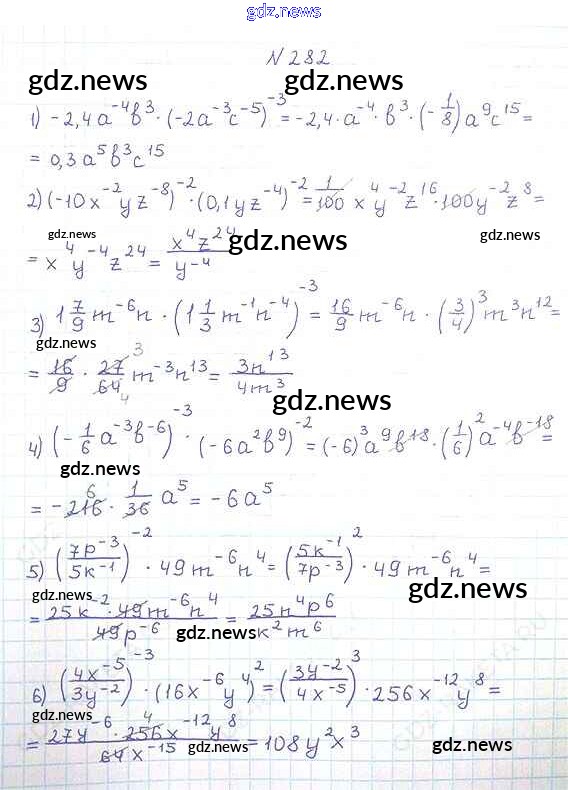 gdz.news
gdz.news
N 282
gdz.news gdz.news
1) -2,4a⁻⁴b³ · (-2a⁻³c⁻⁵)⁻³ = -2,4 · a⁻⁴ · b³ · (-1/8) a⁹c¹⁵ =
= 0,3a⁵b³c¹⁵
2) (-10x⁻²yz⁻⁸)⁻² · (0,1yz⁻⁴)⁻² = 1/100 x⁴y⁻²z¹⁶ · 100y⁻²z⁸ =
gdz.news gdz.news gdz.news
= x⁴y⁻⁴z²⁴ = x⁴z²⁴/y⁻⁴
3) 1 7/9 m⁻⁶n · (1 1/3 m⁻¹n⁻⁴)⁻³ = 16/9 m⁻⁶n · (3/4)³ m³n¹² =
gdz.news
= 16/9 · 27/64 m⁻³n¹³ = 3n¹³/4m³
gdz.news
4) (-1/6 a⁻³b⁻⁶)⁻³ · (-6a²b⁹)⁻² = (-6)³a⁹b¹⁸ · (1/6)²a⁻⁴b⁻¹⁸ =
gdz.news
= -216 · 1/36 a⁵ = -6a⁵
5) (7p⁻³/5k⁻¹)⁻² · 49m⁻⁶n⁴ = (5k⁻¹/7p⁻³)² · 49m⁻⁶n⁴ =
gdz.news gdz.news
= 25k⁻² · 49m⁻⁶n⁴/49p⁻⁶ = 25n⁴p⁶/k²m⁶
gdz.news
6) (4x⁻⁵/3y⁻²)⁻³ · (16x⁻⁶y⁴)² = (3y⁻²/4x⁻⁵)³ · 256x⁻¹²y⁸ =
gdz.news
= 27y⁻⁶ · 256x⁻¹²y⁸/64x⁻¹⁵ = 108y²x³
gdz.news gdz.news